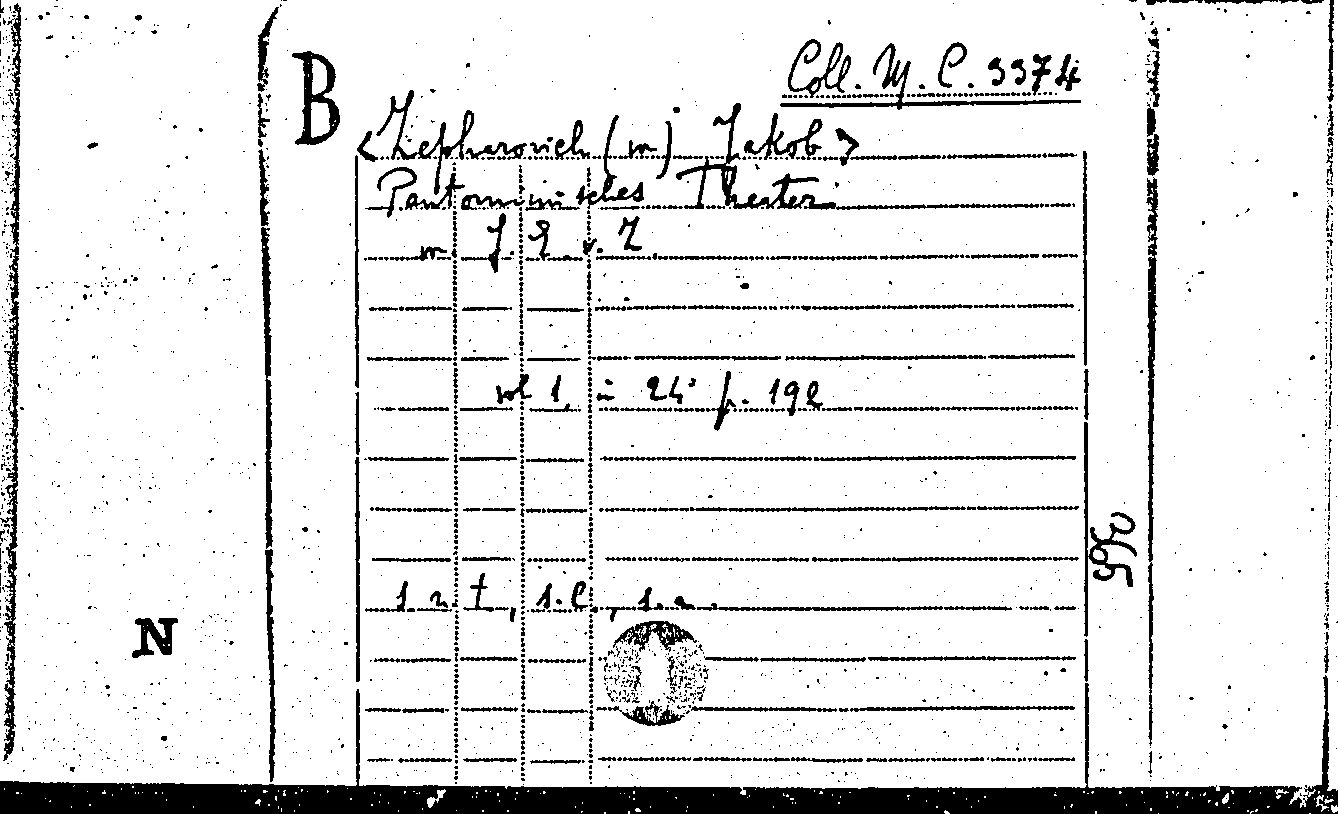 B
Coll. M. C. 3374
<Zepharovich (von) Jakob>
Pantomimisches Theater
von J. E. v. Z.
vol 1, in 24° p. 192
s. n. t., s. l., s. a.
N